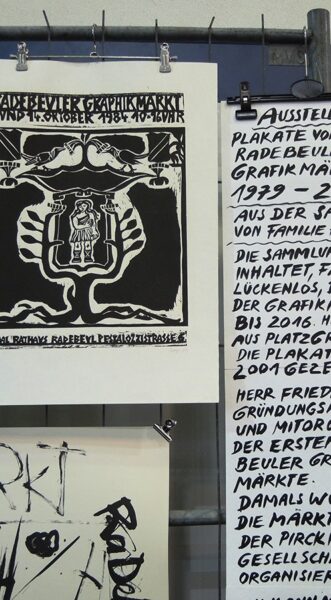 RADEBEULER GRAPHIKMARKT
UND 14. OKTOBER 1984 10-16UHR
RATHAUS RADEBEUL PESTALOZZISTRASSE 6
RKT
RADE
AUSSTELL
PLAKATE VO
RADEBEUL
GRAFIKMA
1979 - 2
AUS DER S
VON FAMILIE
DIE SAMMLU
INHALTET, F
LÜCKENLOS, D
DER GRAFIK
BIS 2016. H
AUS PLATZGR
DIE PLAKAT
2001 GEZE
HERR FRIED
GRÜNDUNGS
UND MITOR
DER ERSTE
BEULER GR
MÄRKTE.
DAMALS W
DIE MÄRKT
DER PIRCK
GESELLSCHA
ORGANISIER